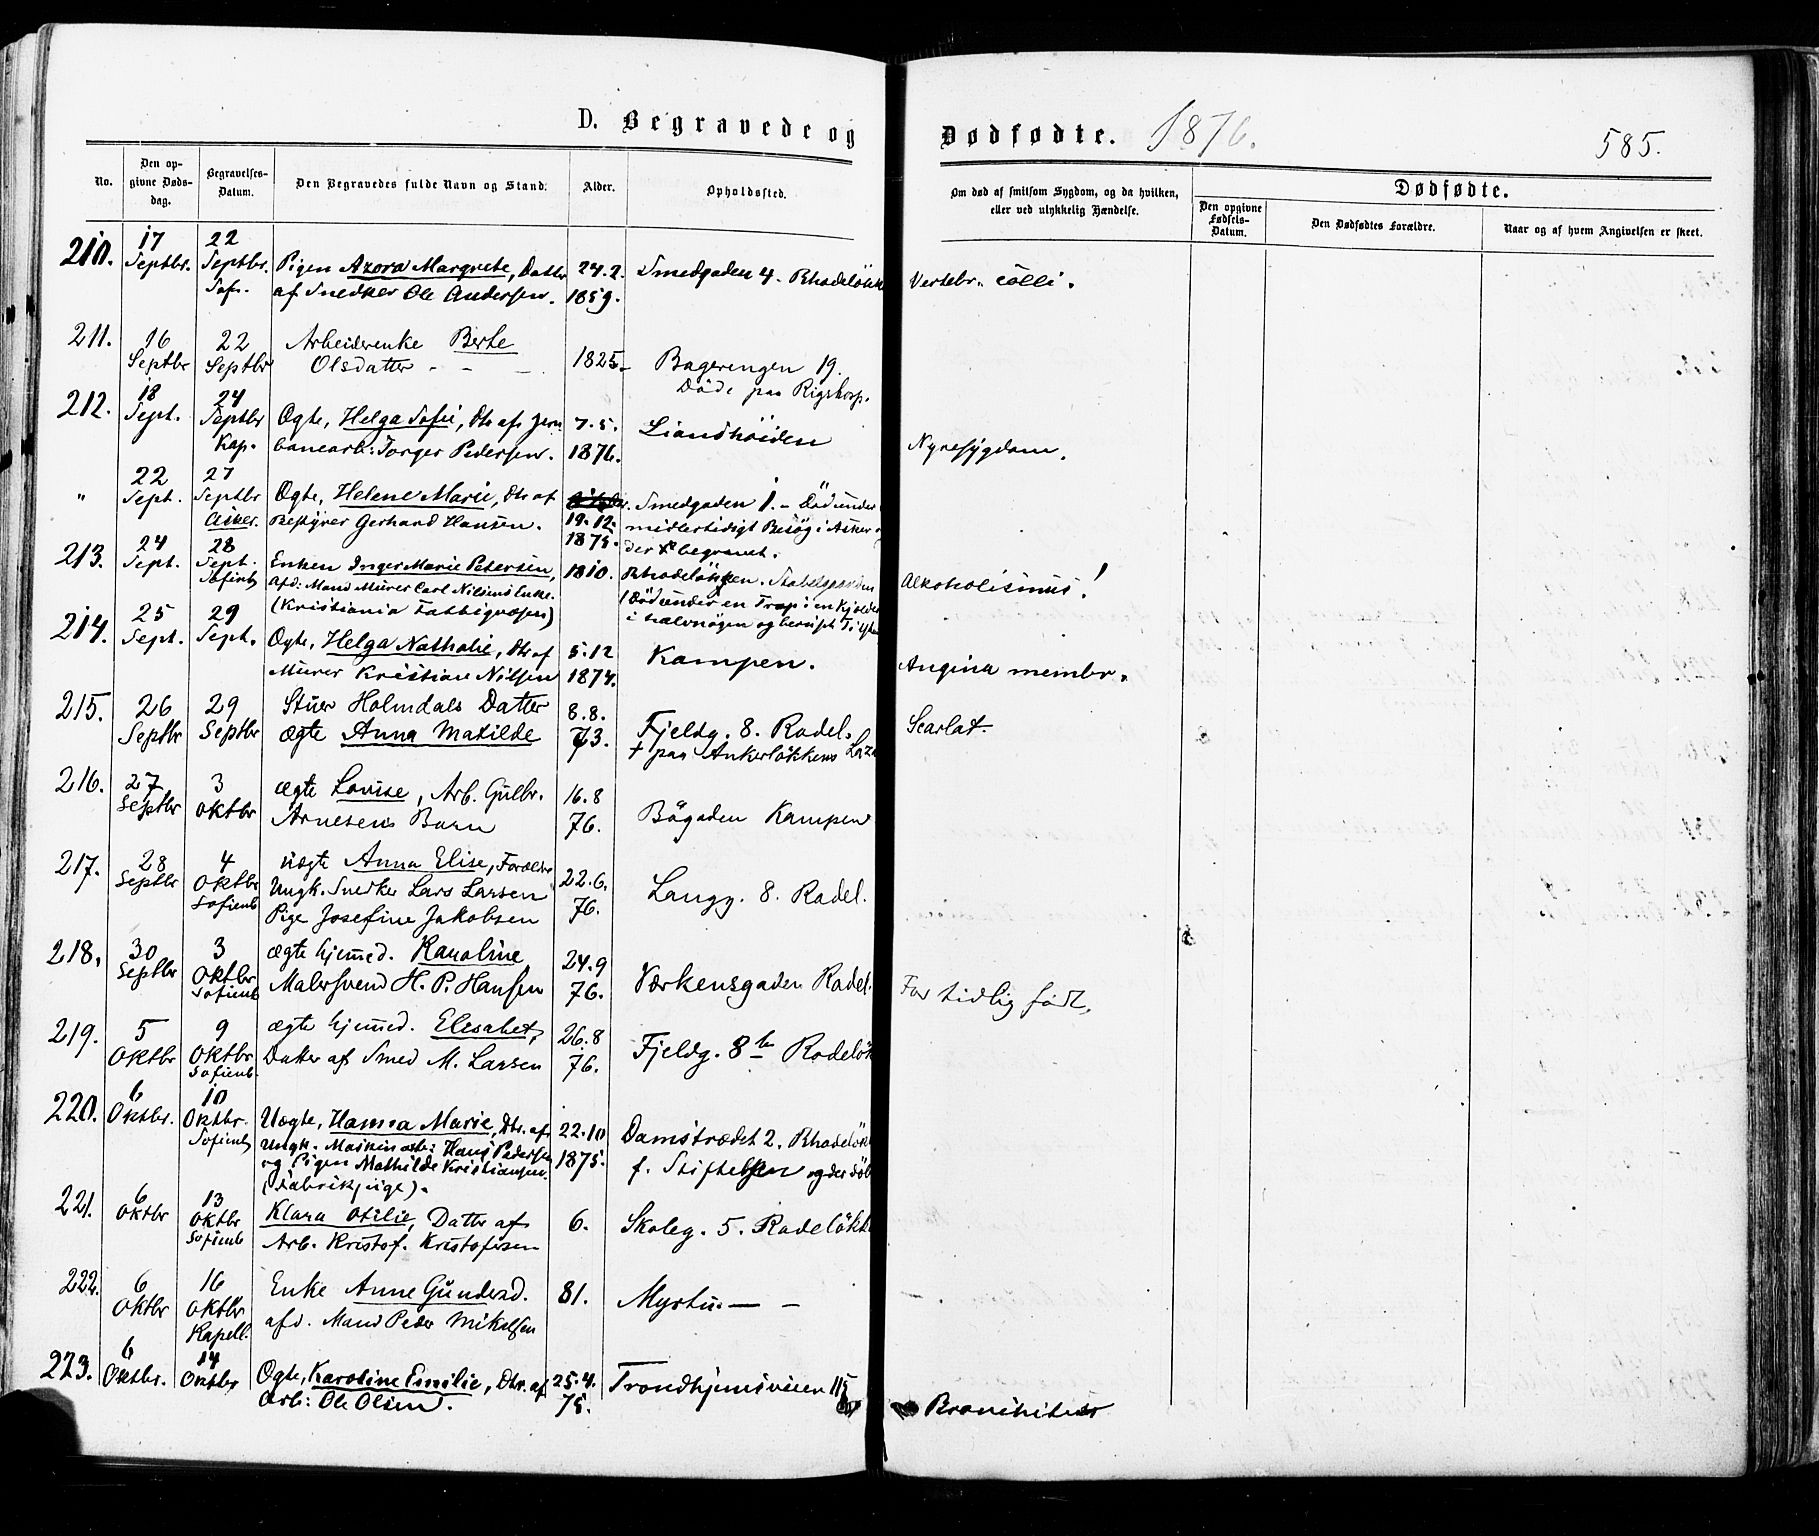 D. Begravede og
Dødfødte. 1876.
585.
No.
Den opgivne Dødsdag.
Begravelses-Datum.
Den Begravedes fulde Navn og Stand.
Alder.
Opholdssted.
Om død af smitsom Sygdom, og da hvilken, eller ved ulykkelig Hændelse.
Dødfødte.
Den opgivne Fødsels-Datum.
Den Dødfødtes Forældre.
Naar og af hvem Angivelsen er skeet.
210. 17 Septbr. 22 Septbr. Sof. Pigen Azora Margrete, Datter 24.2. Smedgaden 4. Rhodeløkk Vertebr. colli.
af Snedker Ole Andersen. 1859.
211. 16 Septbr 22 Septbr Arbeiderenke Berte
Olsdatter - - - 1825- Bagerengen 19.
Döde paa Rigshosp.
212. 18 Sept. 24 Septbr Kap. Ægte, Helga Sofie, Dtr af Jern 7.5. Liandhöiden
banearb: Torger Pedersen. 1876. Nyresygdom.
" 22 Sept. 27 Septbr Asker. Ægte, Helene Marie, Dtr. af Smedgaden 1. - Död under
Bestyrer Gerhard Hansen. 19.12. 1875. midlertidigt Besög i Asker
der begravet.
213. 24 Sept. 28 Sept. Sofienb Enken Inger Marie Petersen, 1810. Rhodelökken. Stabelgaarden Alkoholisimus!
afd. Mand Murer Carl Nilsens Enke. (Död under en Trap i en Kjelder
(Kristiania Fattigvæsen) i halvnögen og beruset Tilstan
214. 25 Sept. 29 Sept. Ægte, Helga Nathalie, Dtr af 5.12 Kampen.
Murer Kristian Nilsen 1874. Angina membr.
215. 26 Septbr 29 Septbr Stuer Holmdals Datter 8.8. Fjeldg. 8. Rodel. Scarlat.
ægte Anna Matilde 73. † paa Ankerlökkens Laza
216. 27 Septbr 3 Oktbr ægte Louise, Arb. Gulbr. 16.8
Arnesens Barn 76. Bögaden Kampen
217. 28 Septbr 4 Oktbr Sofienb uægte Anna Elise, Forældre 22.6.
Ungk. Snedker Lars Larsen 76. Langg. 8. Rodel.
Pige Josefine Jakobsen
218. 30 Septbr 3 Oktbr Sofienb ægte hjemmed. Karoline 24.9
Malersvend H. P. Hansen 76. Værkensgaden Rodel. For tidlig født.
219. 5 Oktbr 9 Oktbr Sofienb. ægte hjemmed. Elisabet, 26.8
Datter af Smed M. Larsen 76. Fjeldg. 8b Rodelök
220. 6 Oktbr. 10 Oktbr. Sofienb Uægte, Hanna Marie, Dtr. af 22.10 Damstrædet 2. Rhodelök
Ungk. Maskinarb: Hans Pedersen 1875. f. Stiftelsen og der döb
og Pigen Mathilde Kristiansen.
(Fabrikpige).
221. 6 Oktbr 13 Oktbr Sofienb Klara Otilie, Datter af 6. Skoleg. 5. Rodelökk
Arb. Kristof. Kristofersen
222. 6 Oktbr 16 Oktbr Kapell. Enke Anne Gundersd. 81. Myrtu. - -
afd. Mand Peder Mikelsen
223. 6 Oktbr. 14 Oktbr Ægte, Karoline Emilie, Dtr. af 25.4. Trondhjemsveien 115
Arb: Ole Olsen. 75. Bronchitis